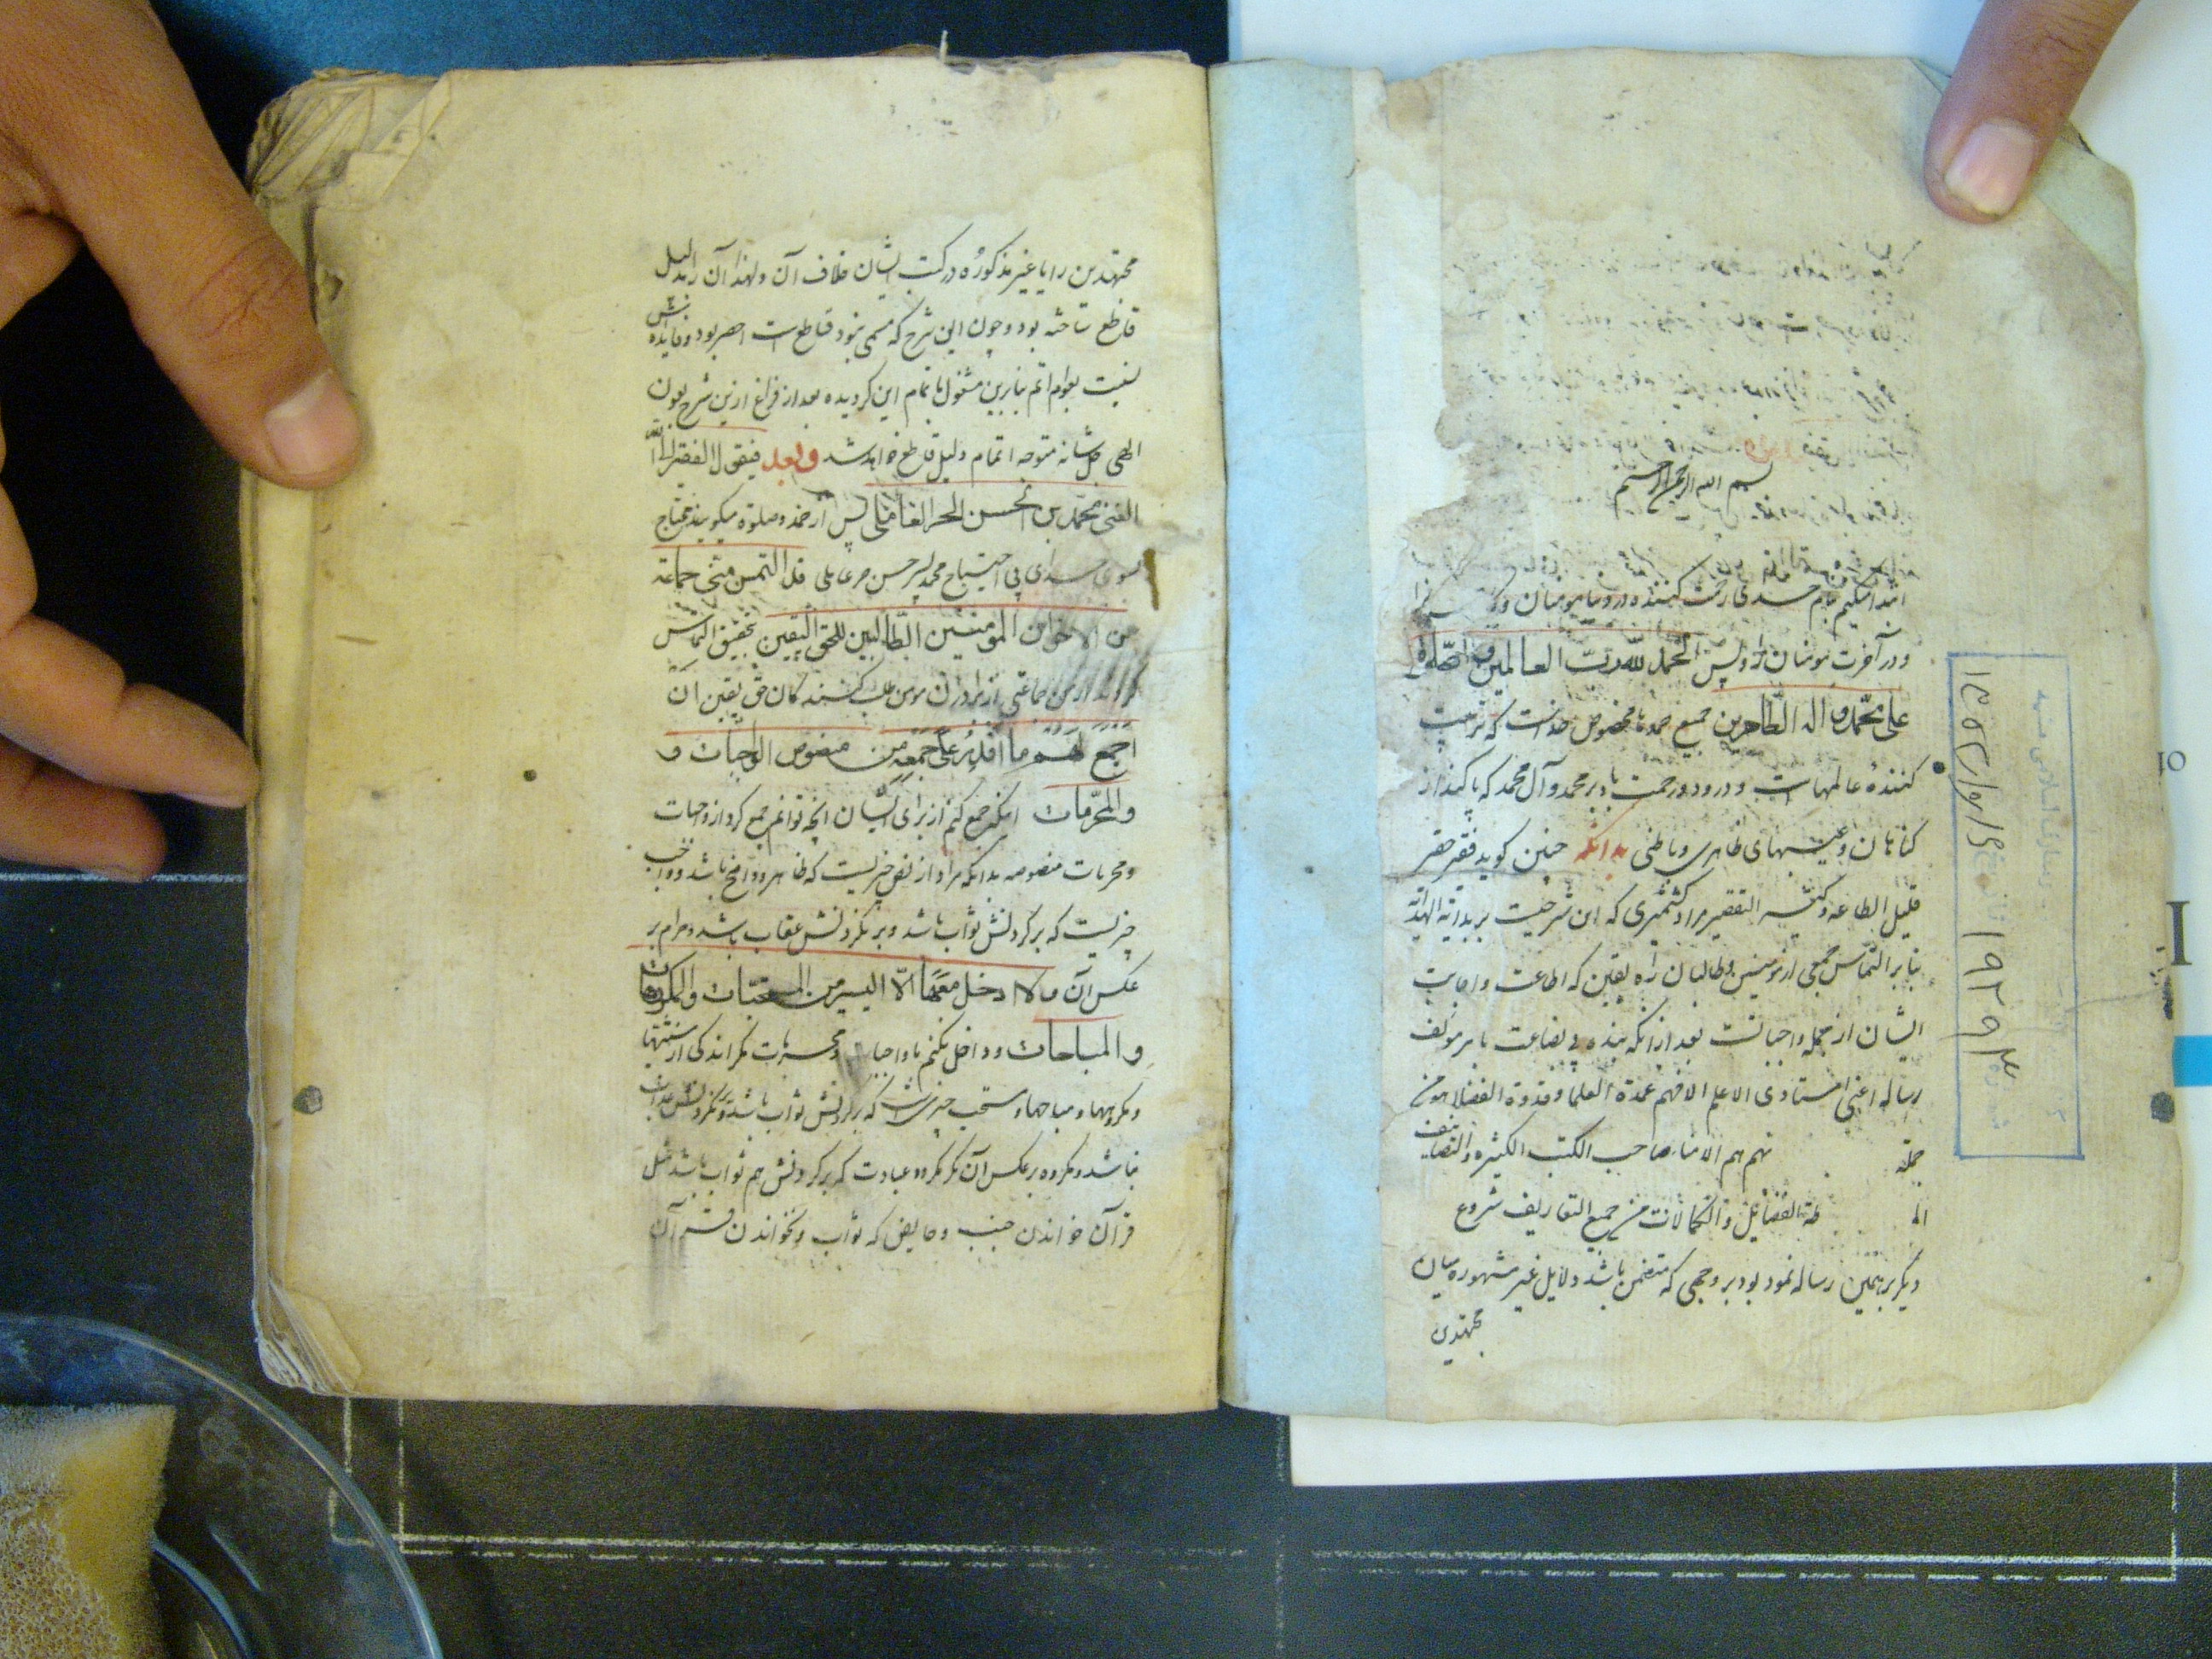 بسم الله الرحمن الرحیم
ابتدا میکنم بنام خدای رحمت کننده در دنیا بمومنان و
و در آخرت بمومنان و پس الحمد لله رب العالمین و الصلوة
علی محمد و اله الطاهرین جمیع حمدها مخصوص خداست که تربیت
کنندۀ عالمهاست و درود و رحمت باد بر محمد و آل محمد که پاکند از
کناهان و عیبهای ظاهری و باطنی بدانکه چنین کوید فقیر حقیر
قلیل الطاعه و کثیر التقصیر مراد کشمیری که این شرحیست بر بدایة الهدایة
بنا بر التماس جمعی از مومنین و طالبان راه یقین که اطاعت و اجابت
ایشان از جمله واجباتست بعد از انکه بنده بی بضاعت بامر مولف
رساله اعنی استادی الاعلم الافهم عمدة العلما و قدوة الفضلا
جملة فهم هم الامناء صاحب الکتب الکثیره و التصانیف
الفضایل و الکمالات من جمیع التعاریف شروع
دیکر بر همین رساله نمود بود بر وجهی که متضمن باشد دلایل غیر مشهوره میان
مجتهدین
۱۹۳۹۳
مجتهدین را یا غیر مذکوره در کتب ایشان خلاف آن و لهذا آن را بدلیل
قاطع ساخته بود و چون این شرح که مسمی بنود قاطع است احصر بود و فایده اش
نسبت بعوام اتم بنابرین مشغول باتمام این کردیده بعد از فراغ ازین شرح بعون
الهی جل شانه متوجه اتمام دلیل قاطع خواهد شد و بعد فیقول الفقیر الی الله
الغنی محمد بن الحسن الحر العاملی پس از حمد و صلوة میکوید محتاج
بسوی خدای بی احتیاج محمد پسر حسن حر عاملی قد التمس منی جماعة
من الاخوان المومنین الطالبین للحق الیقین بتحقیق التماس
کردند از من جماعتی از برادران مومن طلب کنندکان حق یقین ان
اجمع لهم ما اقدر علی جمعه من منصوص الواجبات و
والمحرمات اینکه جمع کنم از برای ایشان انچه توانم جمع کرد از واجبات
و محرمات منصوصه بدانکه مراد از نص چیزیست که ظاهر و واضح باشد و واجب
چیزیست که بر کردنش ثواب باشد و بر نکردنش عقاب باشد و حرام بر
عکس آن و لا ادخل معها الا الیسیر من المستحبات والمکروهات
و المباحات و داخل نکنم با واجبات و محرمات مکر اندکی از سنتها
و مکروهها و مباحها و مستحب چیزیست که بر کردنش ثواب باشد و بر نکردنش عذاب
نباشد و مکروه بر عکس آن مکر مکروه عبادت که بر کردنش هم ثواب باشد مثل
قرآن خواندن جنب و حایض که ثواب و نخواندن قرآن